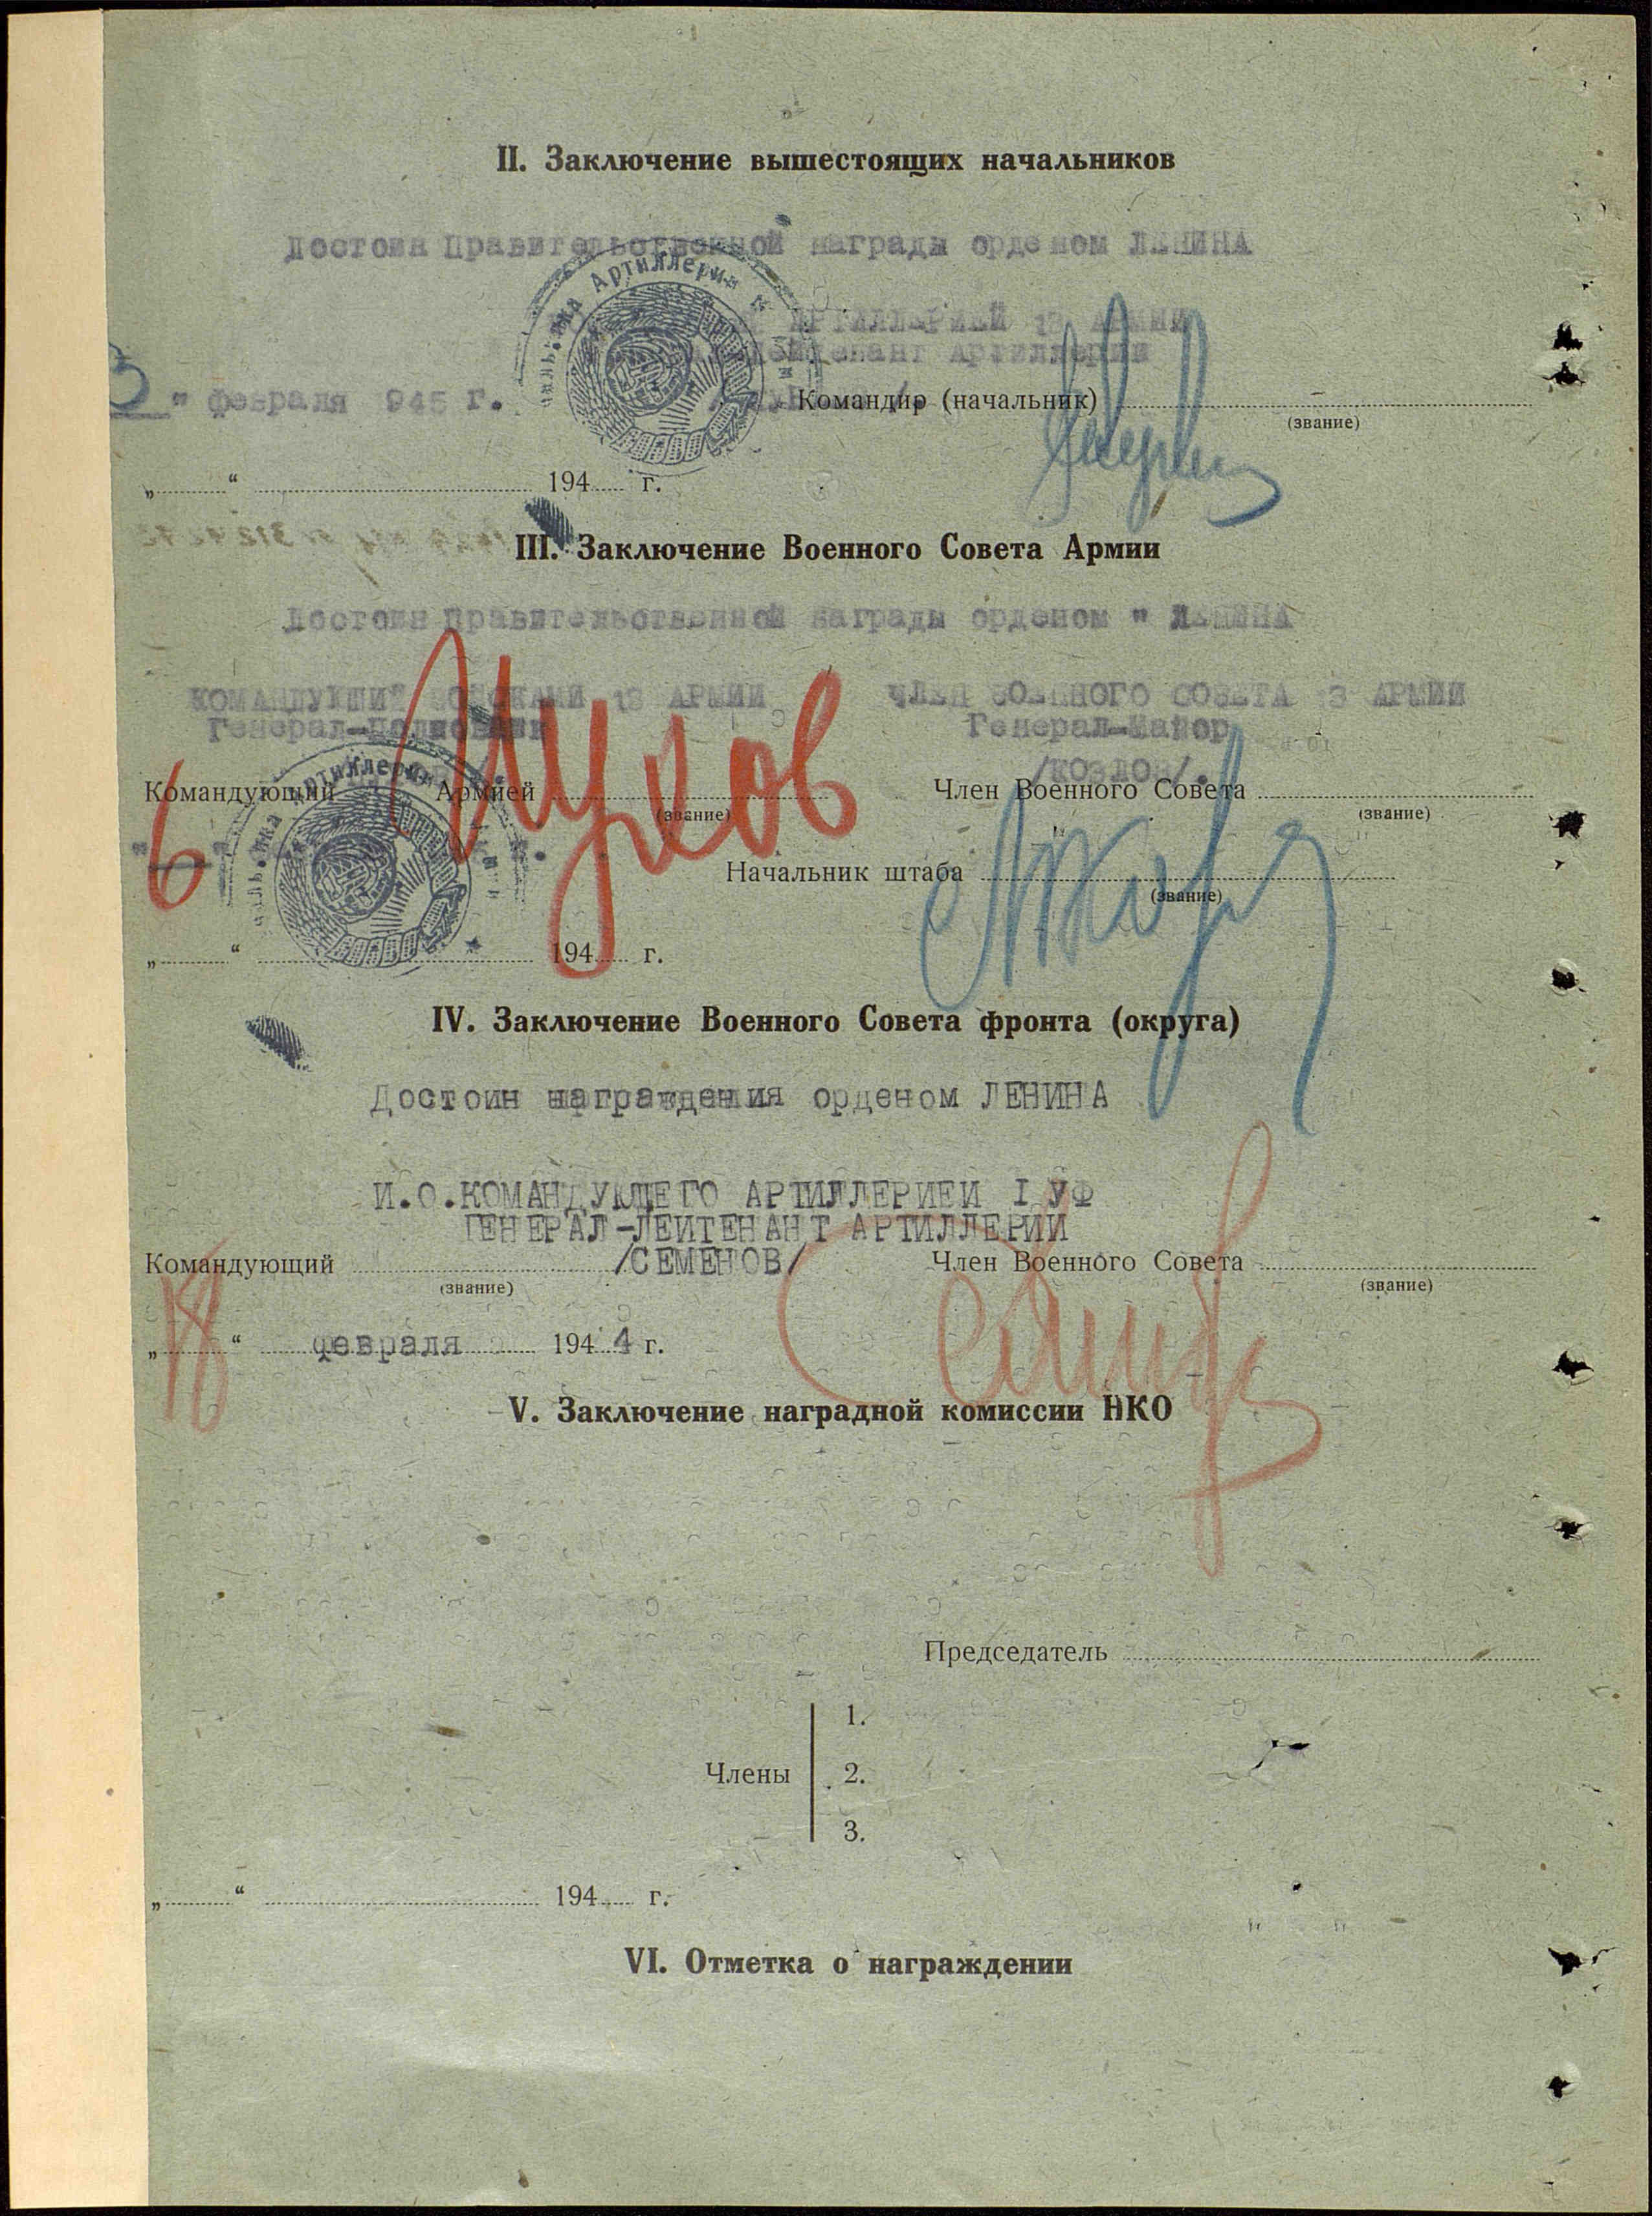 II. Заключение вышестоящих начальников
Достоин Правительственной награды орденом ЛЕНИНА
АРТИЛЛЕРИЕЙ 13 АРМИИ
Лейтенант Артиллерии
" февраля 945 г.
Командир (начальник)
(звание)
„ “ 194 г.
III. Заключение Военного Совета Армии
Достоин Правительственной награды орденом " ЛЕНИНА
КОМАНДУЮЩИЙ ВОЙСКАМИ 13 АРМИИ ЧЛЕН ВОЕННОГО СОВЕТА 13 АРМИИ
Генерал-Полковник Генерал-Майор
/КОЗЛОВ/.
Командующий Армией Член Военного Совета
(звание) (звание)
6
Начальник штаба
(звание)
„ “ 194 г.
IV. Заключение Военного Совета фронта (округа)
Достоин награждения орденом ЛЕНИНА
И.О.КОМАНДУЮЩЕГО АРТИЛЛЕРИЕЙ I УФ
ГЕНЕРАЛ-ЛЕЙТЕНАНТ АРТИЛЛЕРИИ
/СЕМЕНОВ/
Командующий Член Военного Совета
(звание) (звание)
„18“ февраля 1944 г.
V. Заключение наградной комиссии НКО
Председатель
1.
Члены 2.
3.
„ “ 194 г.
VI. Отметка о награждении